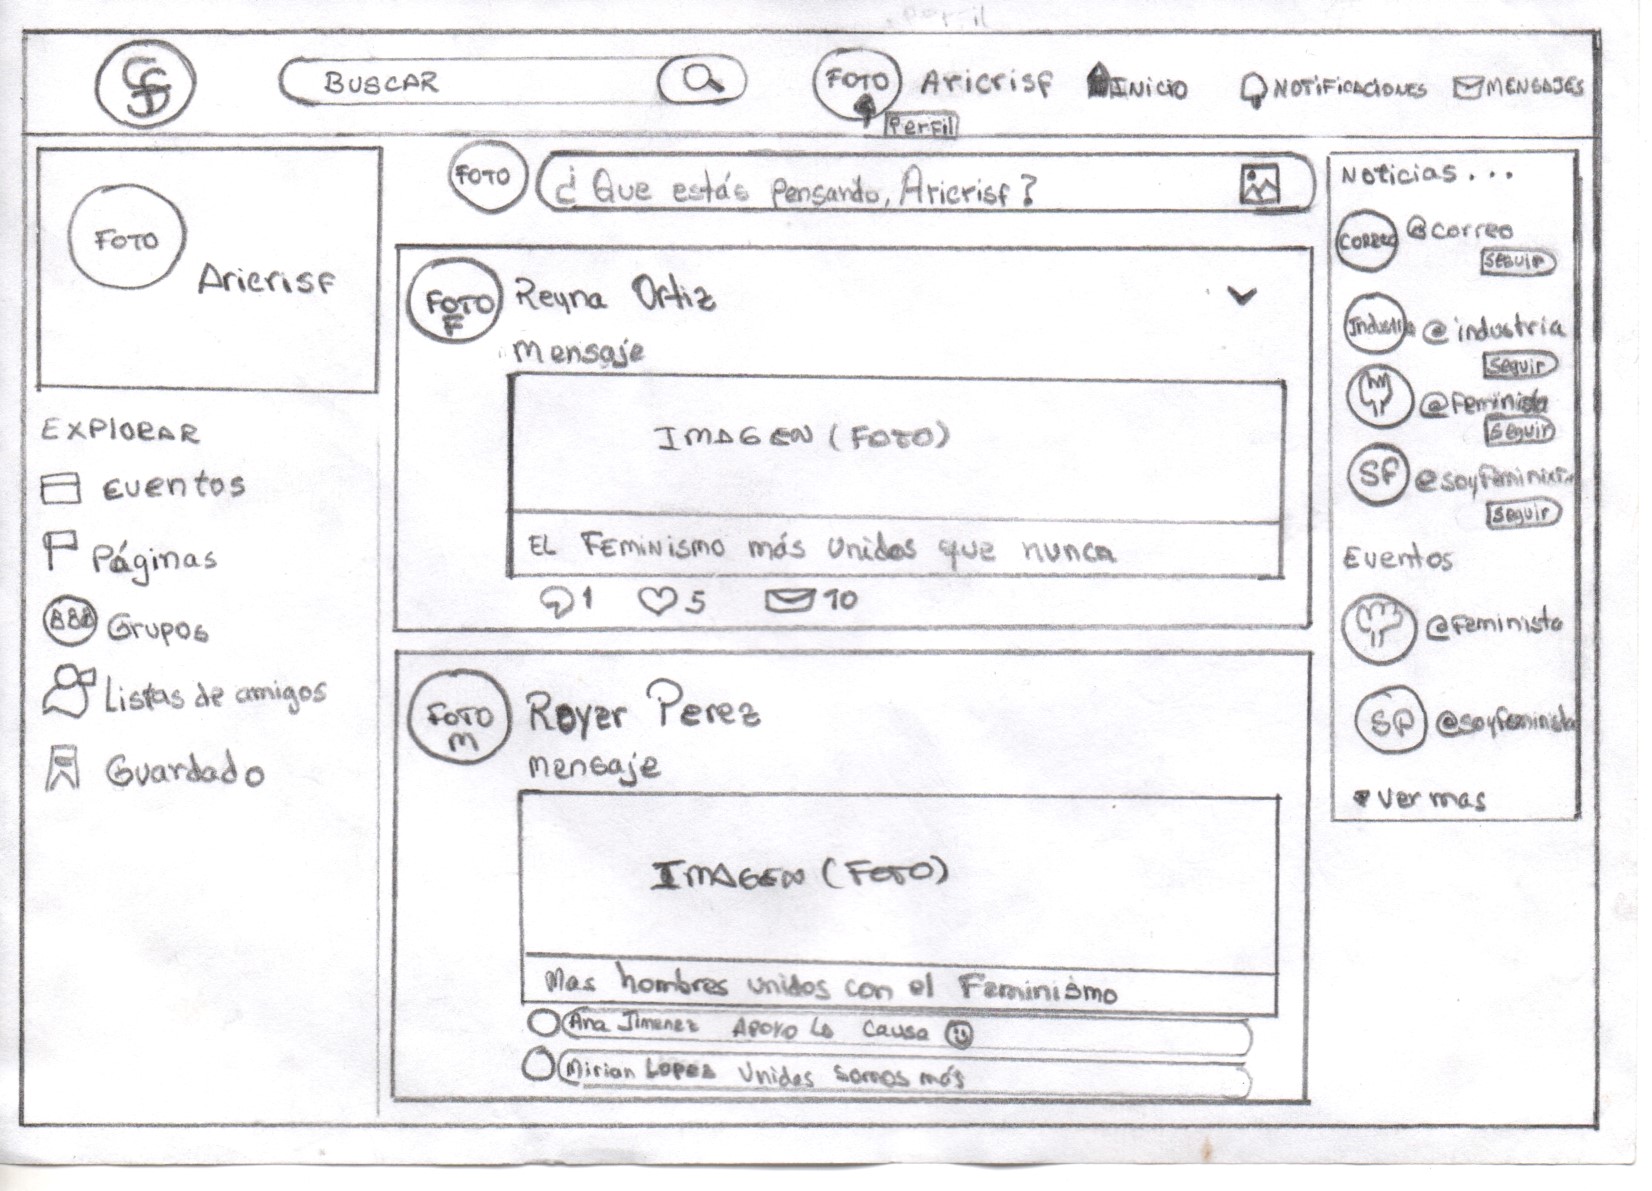 Perfil
BUSCAR
FOTO
Aricrisf
INICIO
NOTIFICACIONES
MENSAJES
Perfil
FOTO
Aricrisf
EXPLORAR
Eventos
Páginas
Grupos
Listas de amigos
Guardado
FOTO
¿Que estás pensando, Aricrisf?
FOTO
F
Reyna Ortiz
Mensaje
IMAGEN (FOTO)
EL FEMINISMO más unidos que nunca
1 5 10
FOTO
M
Royer Perez
Mensaje
IMAGEN (FOTO)
Mas hombres unidos con el Feminismo
Ana Jimenez APOYO La causa
Mirian Lopez Unidas somos más
Noticias...
CORREO @correo
Seguir
Industria @industria
Seguir
@Feminista
Seguir
SF @soyfeminista
Seguir
Eventos
@Feminista
SP @soyfeminista
Ver mas